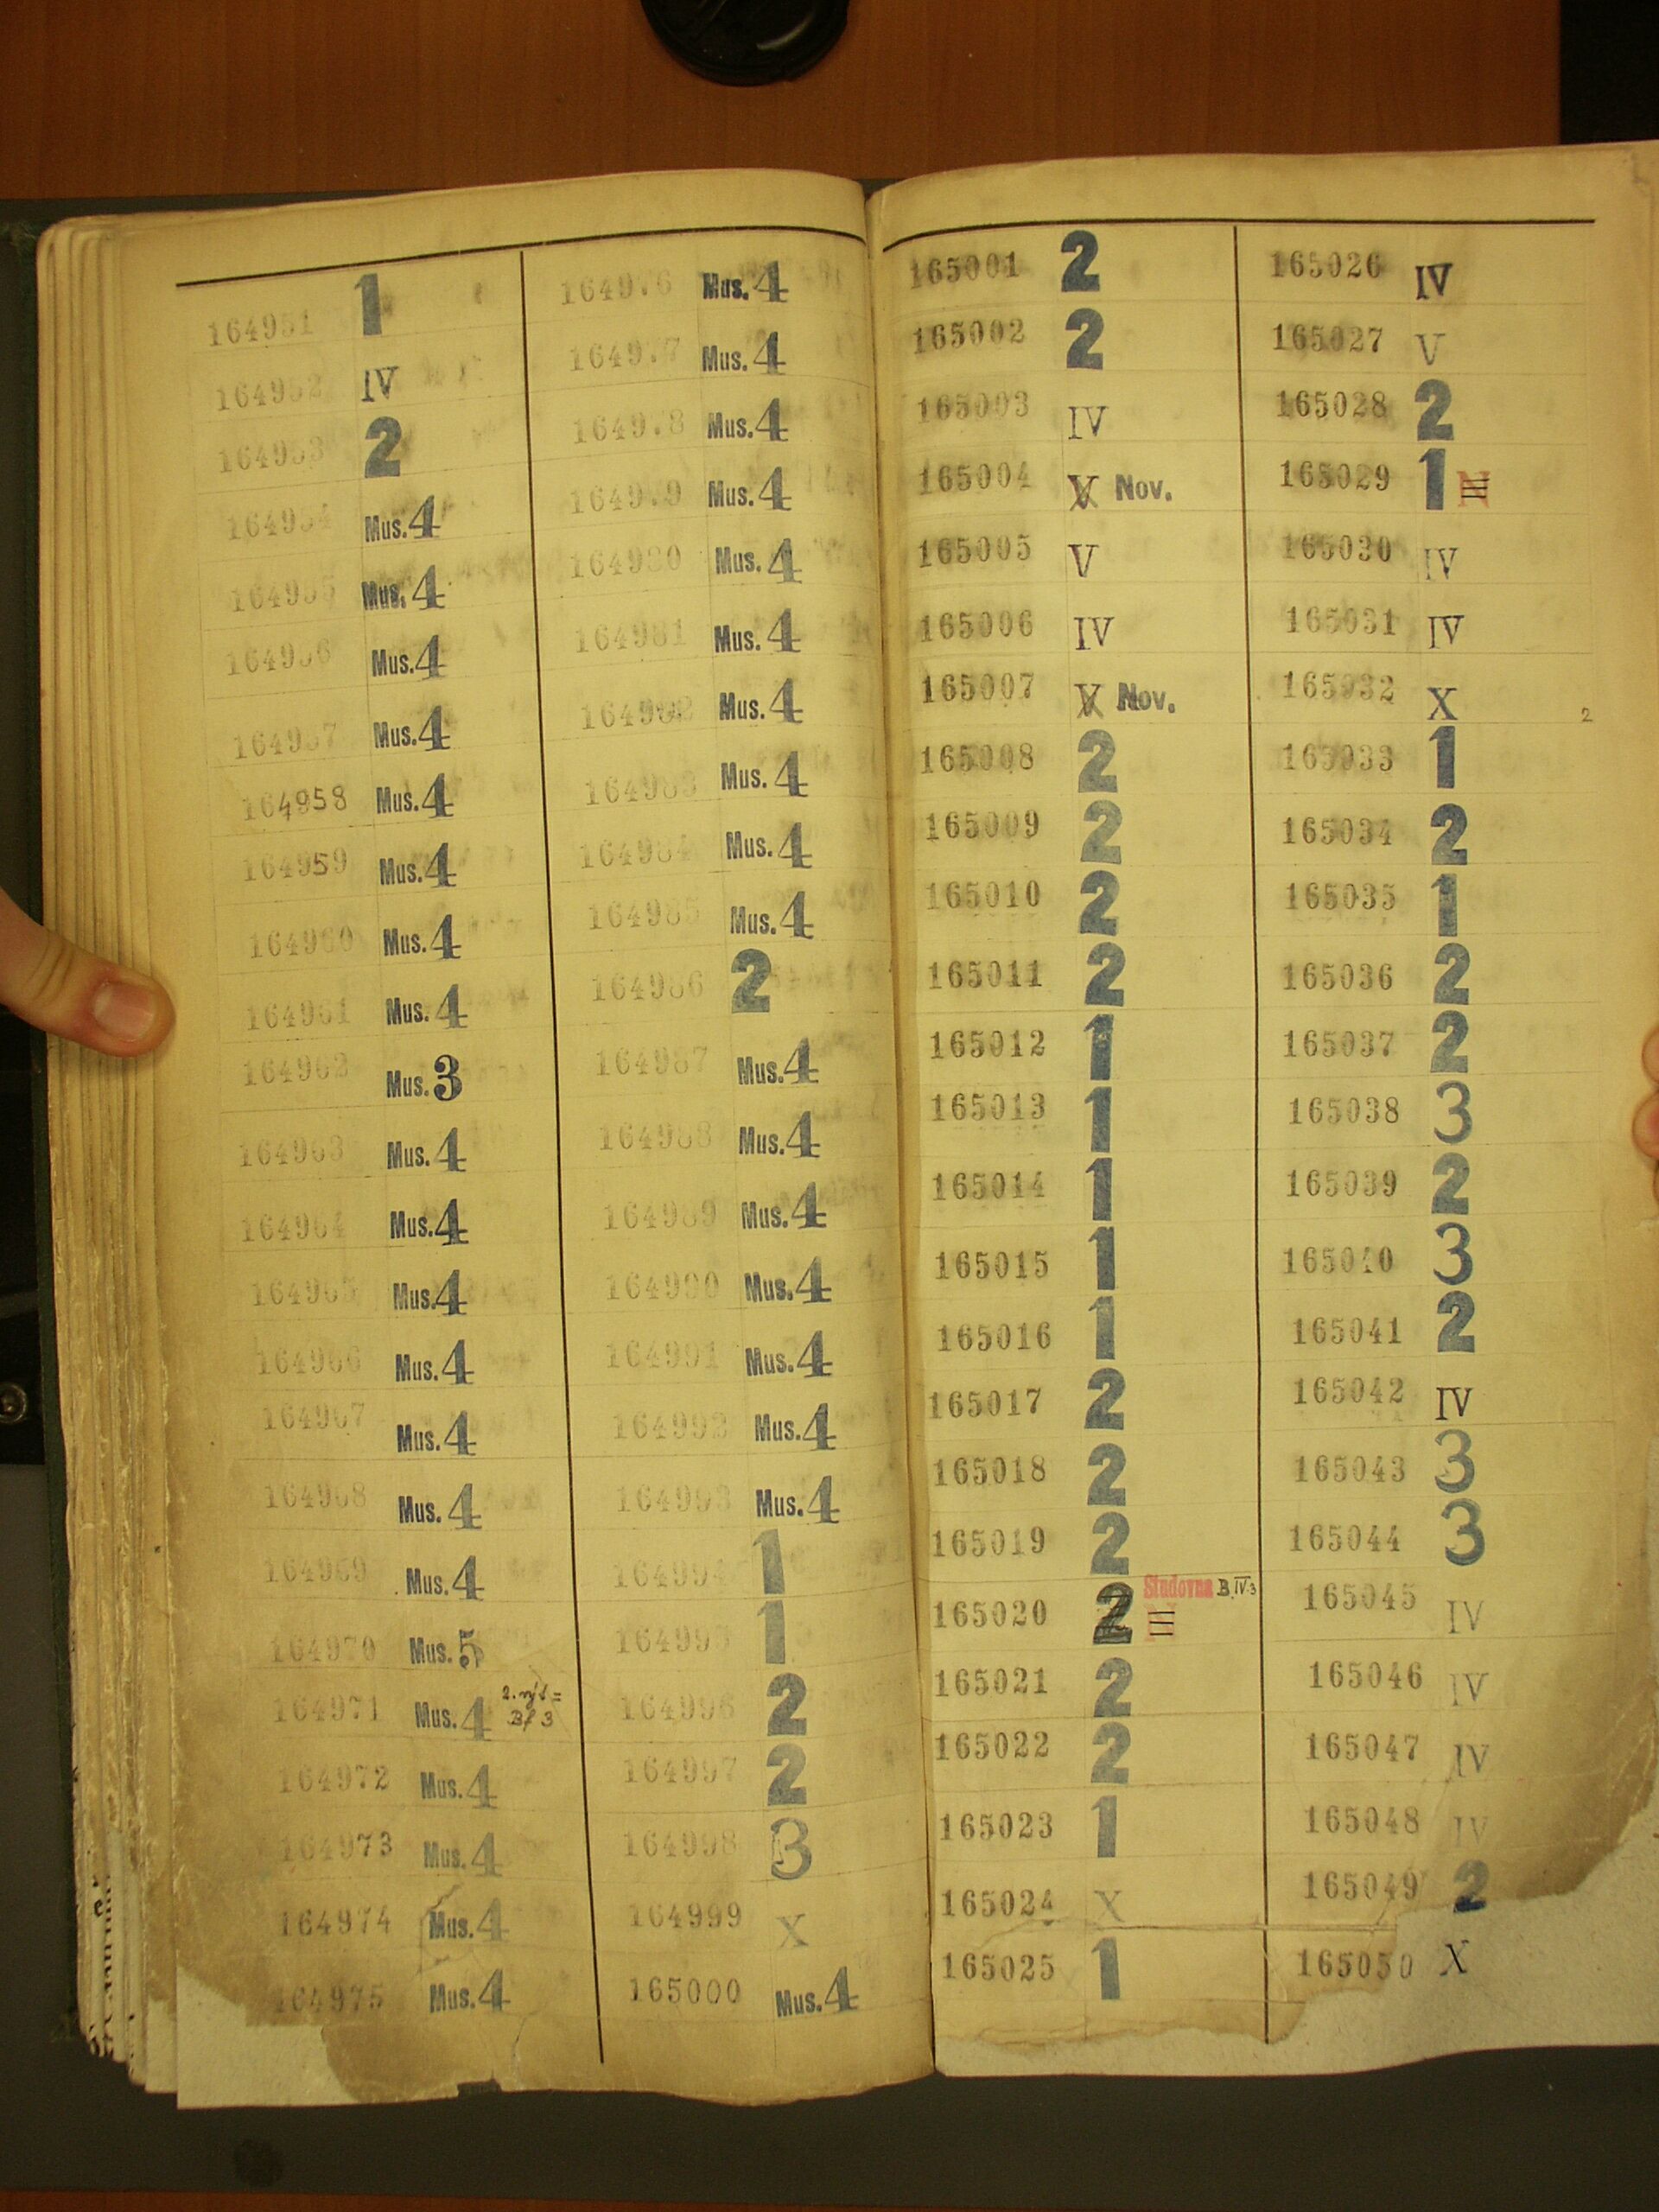 164951 1
164952 IV
164953 2
164954 Mus. 4
164955 Mus. 4
164956 Mus. 4
164957 Mus. 4
164958 Mus. 4
164959 Mus. 4
164960 Mus. 4
164961 Mus. 4
164962 Mus. 3
164963 Mus. 4
164964 Mus. 4
164965 Mus. 4
164966 Mus. 4
164967 Mus. 4
164968 Mus. 4
164969 Mus. 4
164970 Mus. 5
164971 Mus. 4
164972 Mus. 4
164973 Mus. 4
164974 Mus. 4
164975 Mus. 4
164976 Mus. 4
164977 Mus. 4
164978 Mus. 4
164979 Mus. 4
164980 Mus. 4
164981 Mus. 4
164982 Mus. 4
164983 Mus. 4
164984 Mus. 4
164985 Mus. 4
164986 2
164987 Mus. 4
164988 Mus. 4
164989 Mus. 4
164990 Mus. 4
164991 Mus. 4
164992 Mus. 4
164993 Mus. 4
164994 1
164995 1
164996 2
164997 2
164998 3
164999 X
165000 Mus. 4
165001 2
165002 2
165003 IV
165004 V Nov.
165005 V
165006 IV
165007 V Nov.
165008 2
165009 2
165010 2
165011 2
165012 1
165013 1
165014 1
165015 1
165016 1
165017 2
165018 2
165019 2
165020 2 Studovna B IV.3
N
165021 2
165022 2
165023 1
165024 X
165025 1
165026 IV
165027 V
165028 2
165029 1 N
165030 IV
165031 IV
165032 X 2
165033 1
165034 2
165035 1
165036 2
165037 2
165038 3
165039 2
165040 3
165041 2
165042 IV
165043 3
165044 3
165045 IV
165046 IV
165047 IV
165048 IV
165049 2
165050 X